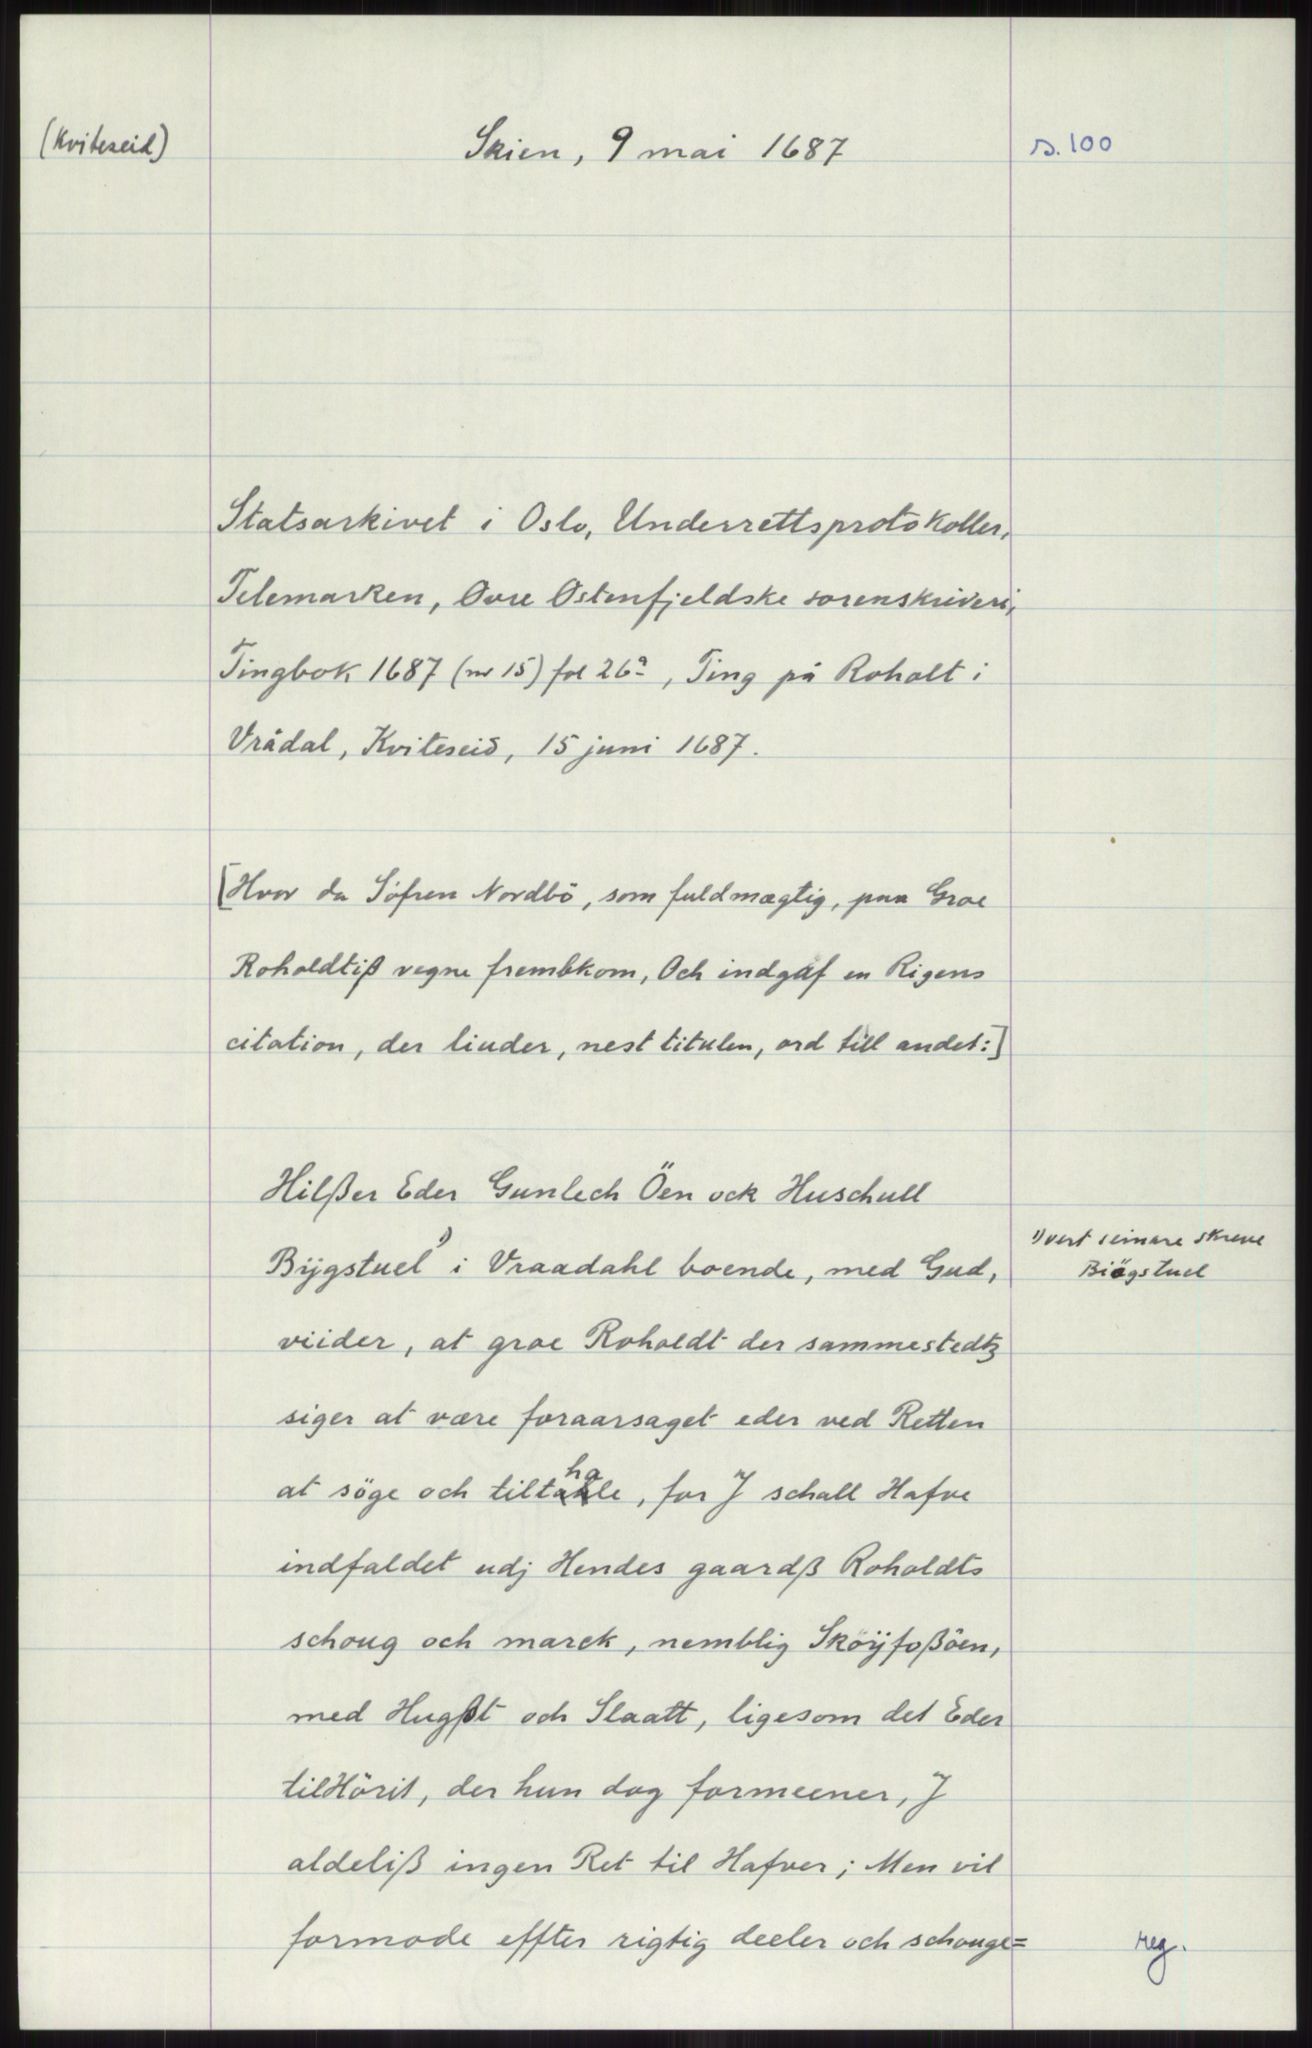 (Kviteseid)
Skien, 9 mai 1687
s. 100
Statsarkivet i Oslo, Underrettsprotokoller,
Telemarken, Øvre Østenfjeldske sorenskriveri,
Tingbok 1687 (nr 15) fol 26a, Ting på Roholt i
Vrådal, Kviteseid, 15 juni 1687.
[Hvor da Söfren Nordbö, som fuldmægtig, paa Groe
Roholdtiß vegne frembkom, Och indgaf en Rigens
citation, der liuder, nest titulen, ord till andet:]
Hilßer Eder Gunlech Öen ock Huschull
Bijgstuel 1) i Vraadahl boende, med Gud,
1) vert seinare skreve
Biögstuel
viider, at groe Roholdt der sammestedtz
siger at være foraarsaget eder ved Retten
at söge och tiltahale, for J schall Hafve
indfaldet udj Hendes gaardß Roholdts
schoug och marck, nemblig Sköijfoßöen,
med Hugßt och Slaatt, ligesom det Eder
tilHörit, der hun dog formeener, J
aldeliß ingen Ret til Hafver; Men vil
formode effter rigtig deeler och schouge=
reg.